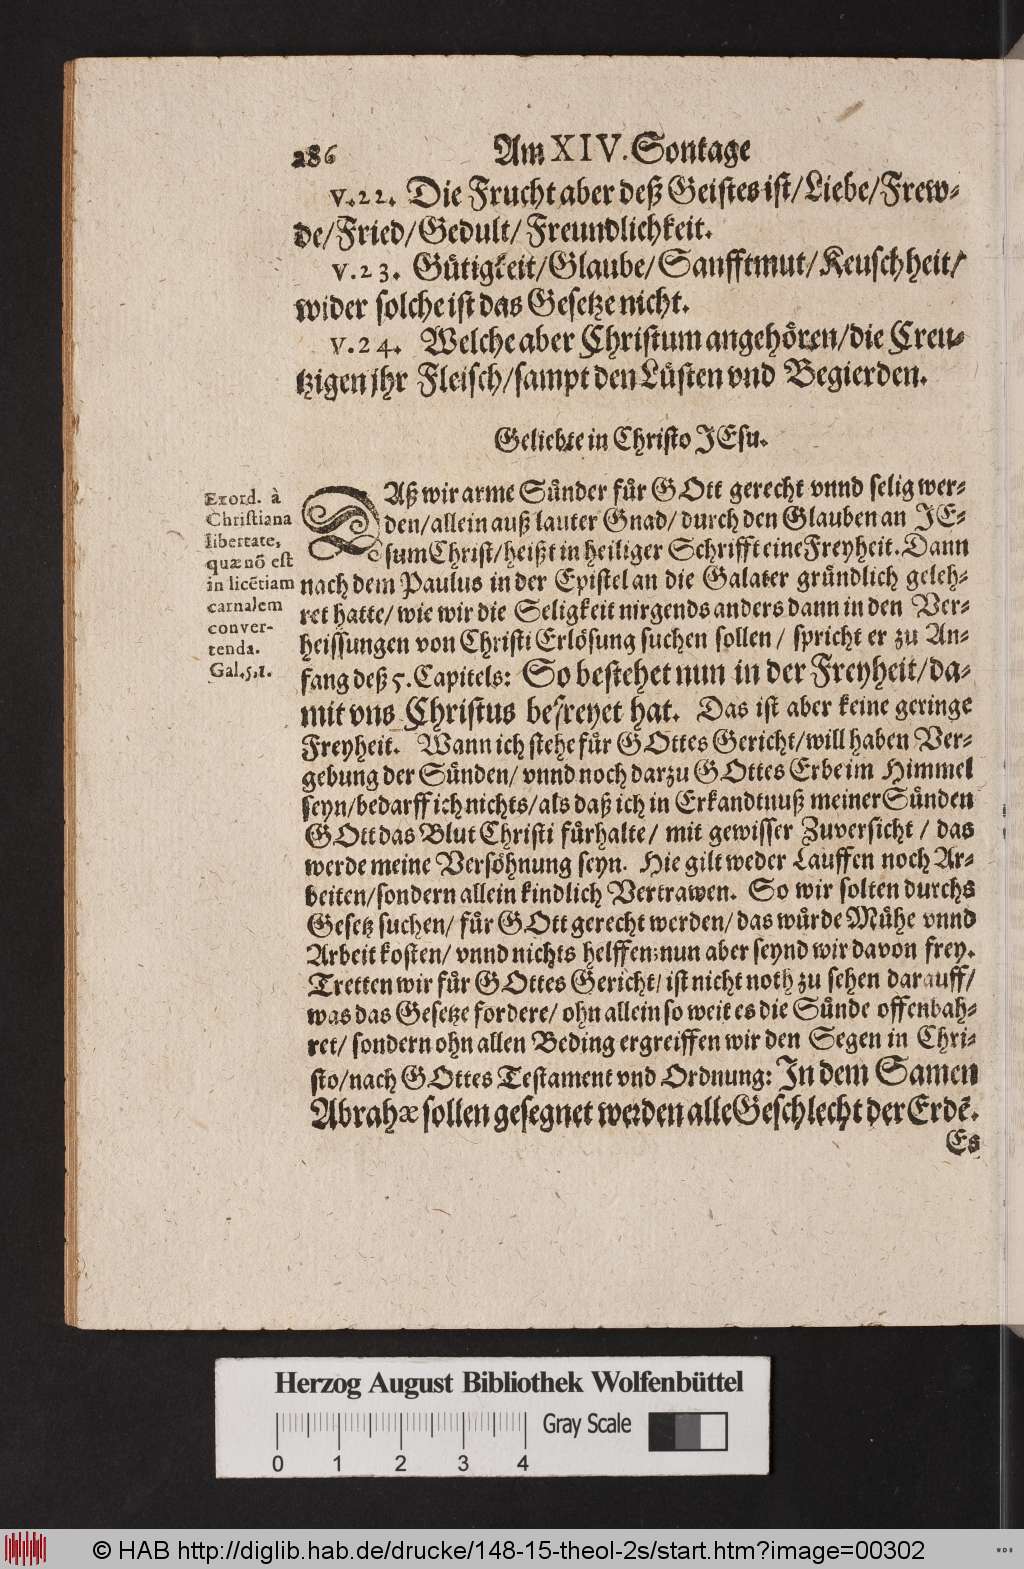 286 Am XIV. Sontage
V.22. Die Frucht aber deß Geistes ist/ Liebe/ Frew-
de/ Fried/ Gedult/ Freundlichkeit.
V.23. Gütigkeit/ Glaube/ Sanfftmut/ Keuschheit/
wider solche ist das Gesetze nicht.
V.24. Welche aber Christum angehören/ die Creu-
tzigen jhr Fleisch/ sampt den Lüsten vnd Begierden.
Geliebte in Christo JEsu.
Exord. à
Christiana
libertate,
quæ nō est
in licētiam
carnalem
conver-
tenda.
Gal.5,1.
DAß wir arme Sünder für GOtt gerecht vnnd selig wer-
den/ allein auß lauter Gnad/ durch den Glauben an JE-
sum Christ/ heißt in heiliger Schrifft eine Freyheit. Dann
nach dem Paulus in der Epistel an die Galater gründlich geleh-
ret hatte/ wie wir die Seligkeit nirgends anders dann in den Ver-
heissungen von Christi Erlösung suchen sollen/ spricht er zu An-
fang deß 5. Capitels: So bestehet nun in der Freyheit/ da-
mit vns Christus befreyet hat. Das ist aber keine geringe
Freyheit. Wann ich stehe für GOttes Gericht/ will haben Ver-
gebung der Sünden/ vnnd noch darzu GOttes Erbe im Himmel
seyn/ bedarff ich nichts/ als daß ich in Erkandtnuß meiner Sünden
GOtt das Blut Christi fürhalte/ mit gewisser Zuversicht/ das
werde meine Versöhnung seyn. Hie gilt weder Lauffen noch Ar-
beiten/ sondern allein kindlich Vertrawen. So wir solten durchs
Gesetz suchen/ für GOtt gerecht werden/ das würde Mühe vnnd
Arbeit kosten/ vnnd nichts helffen: nun aber seynd wir davon frey.
Tretten wir für GOttes Gericht/ ist nicht noth zu sehen darauff/
was das Gesetze fordere/ ohn allein so weit es die Sünde offenbah-
ret/ sondern ohn allen Beding ergreiffen wir den Segen in Chri-
sto/ nach GOttes Testament vnd Ordnung: In dem Samen
Abrahæ sollen gesegnet werden alle Geschlecht der Erdē.
Es
Herzog August Bibliothek Wolfenbüttel
0 1 2 3 4
Gray Scale
© HAB http://diglib.hab.de/drucke/148-15-theol-2s/start.htm?image=00302